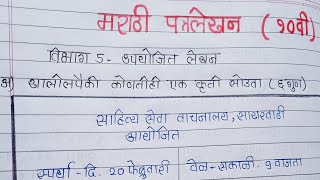 मराठी पत्रलेखन (१०वी)
विभाग 5 - उपयोजित लेखन
अ) खालीलपैकी कोणतीही एक कृती सोडवा (६ गुण)
साहित्य सेवा वाचनालय, सायरवाडी
आयोजित
स्पर्धा - दि. २० फेब्रुवारी
वेळ - सकाळी ९ वाजता